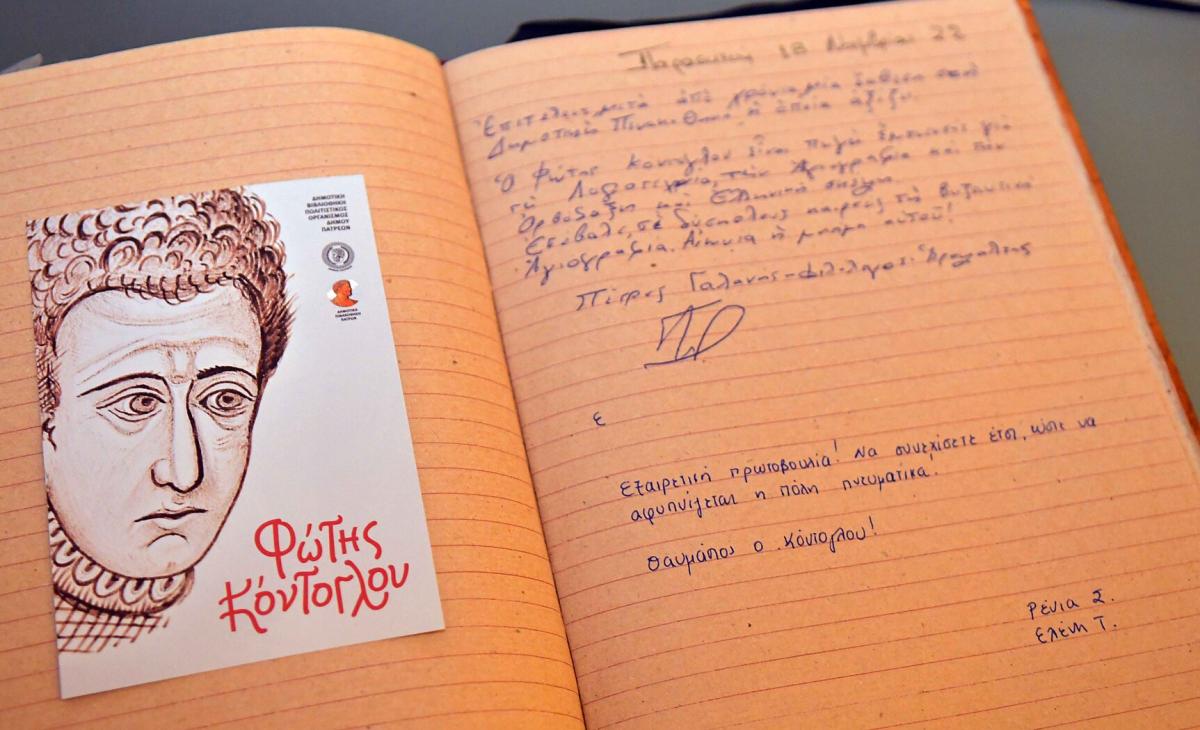 ΔΗΜΟΤΙΚΗ
ΒΙΒΛΙΟΘΗΚΗ
ΠΟΛΙΤΙΣΤΙΚΟΣ
ΟΡΓΑΝΙΣΜΟΣ
ΔΗΜΟΥ
ΠΑΤΡΕΩΝ
ΔΗΜΟΤΙΚΗ
ΠΙΝΑΚΟΘΗΚΗ
ΠΑΤΡΩΝ
Φώτης
Κόντογλου
Παρασκευή 18 Νοεμβρίου 22
Ἐπιτέλους μετά ἀπό χρόνια μία ἔκθεση στή
Δημοτική Πινακοθήκη ἡ ὁποία ἀξίζει.
Ὁ Φώτης Κόντογλου εἶναι πηγή ἔμπνευσης γιά
τή Λογοτεχνία, τήν Ἁγιογραφία και τήν
Ὀρθόδοξη και Ἑλληνική σκέψη.
Ἐπέβαλε, σέ δύσκολους καιρούς τή Βυζαντινή
Ἁγιογραφία. Αἰωνία ἡ μνήμη αὐτοῦ!
Πέτρος Γαλάνης - Φιλόλογος
ε
Εξαιρετική πρωτοβουλία! Να συνεχίσετε έτσι, ώστε να
αφυπνίζεται η πόλη πνευματικά!
Θαυμάσιος ο Κόντογλου!
Ρένια Σ.
Ελένη Τ.